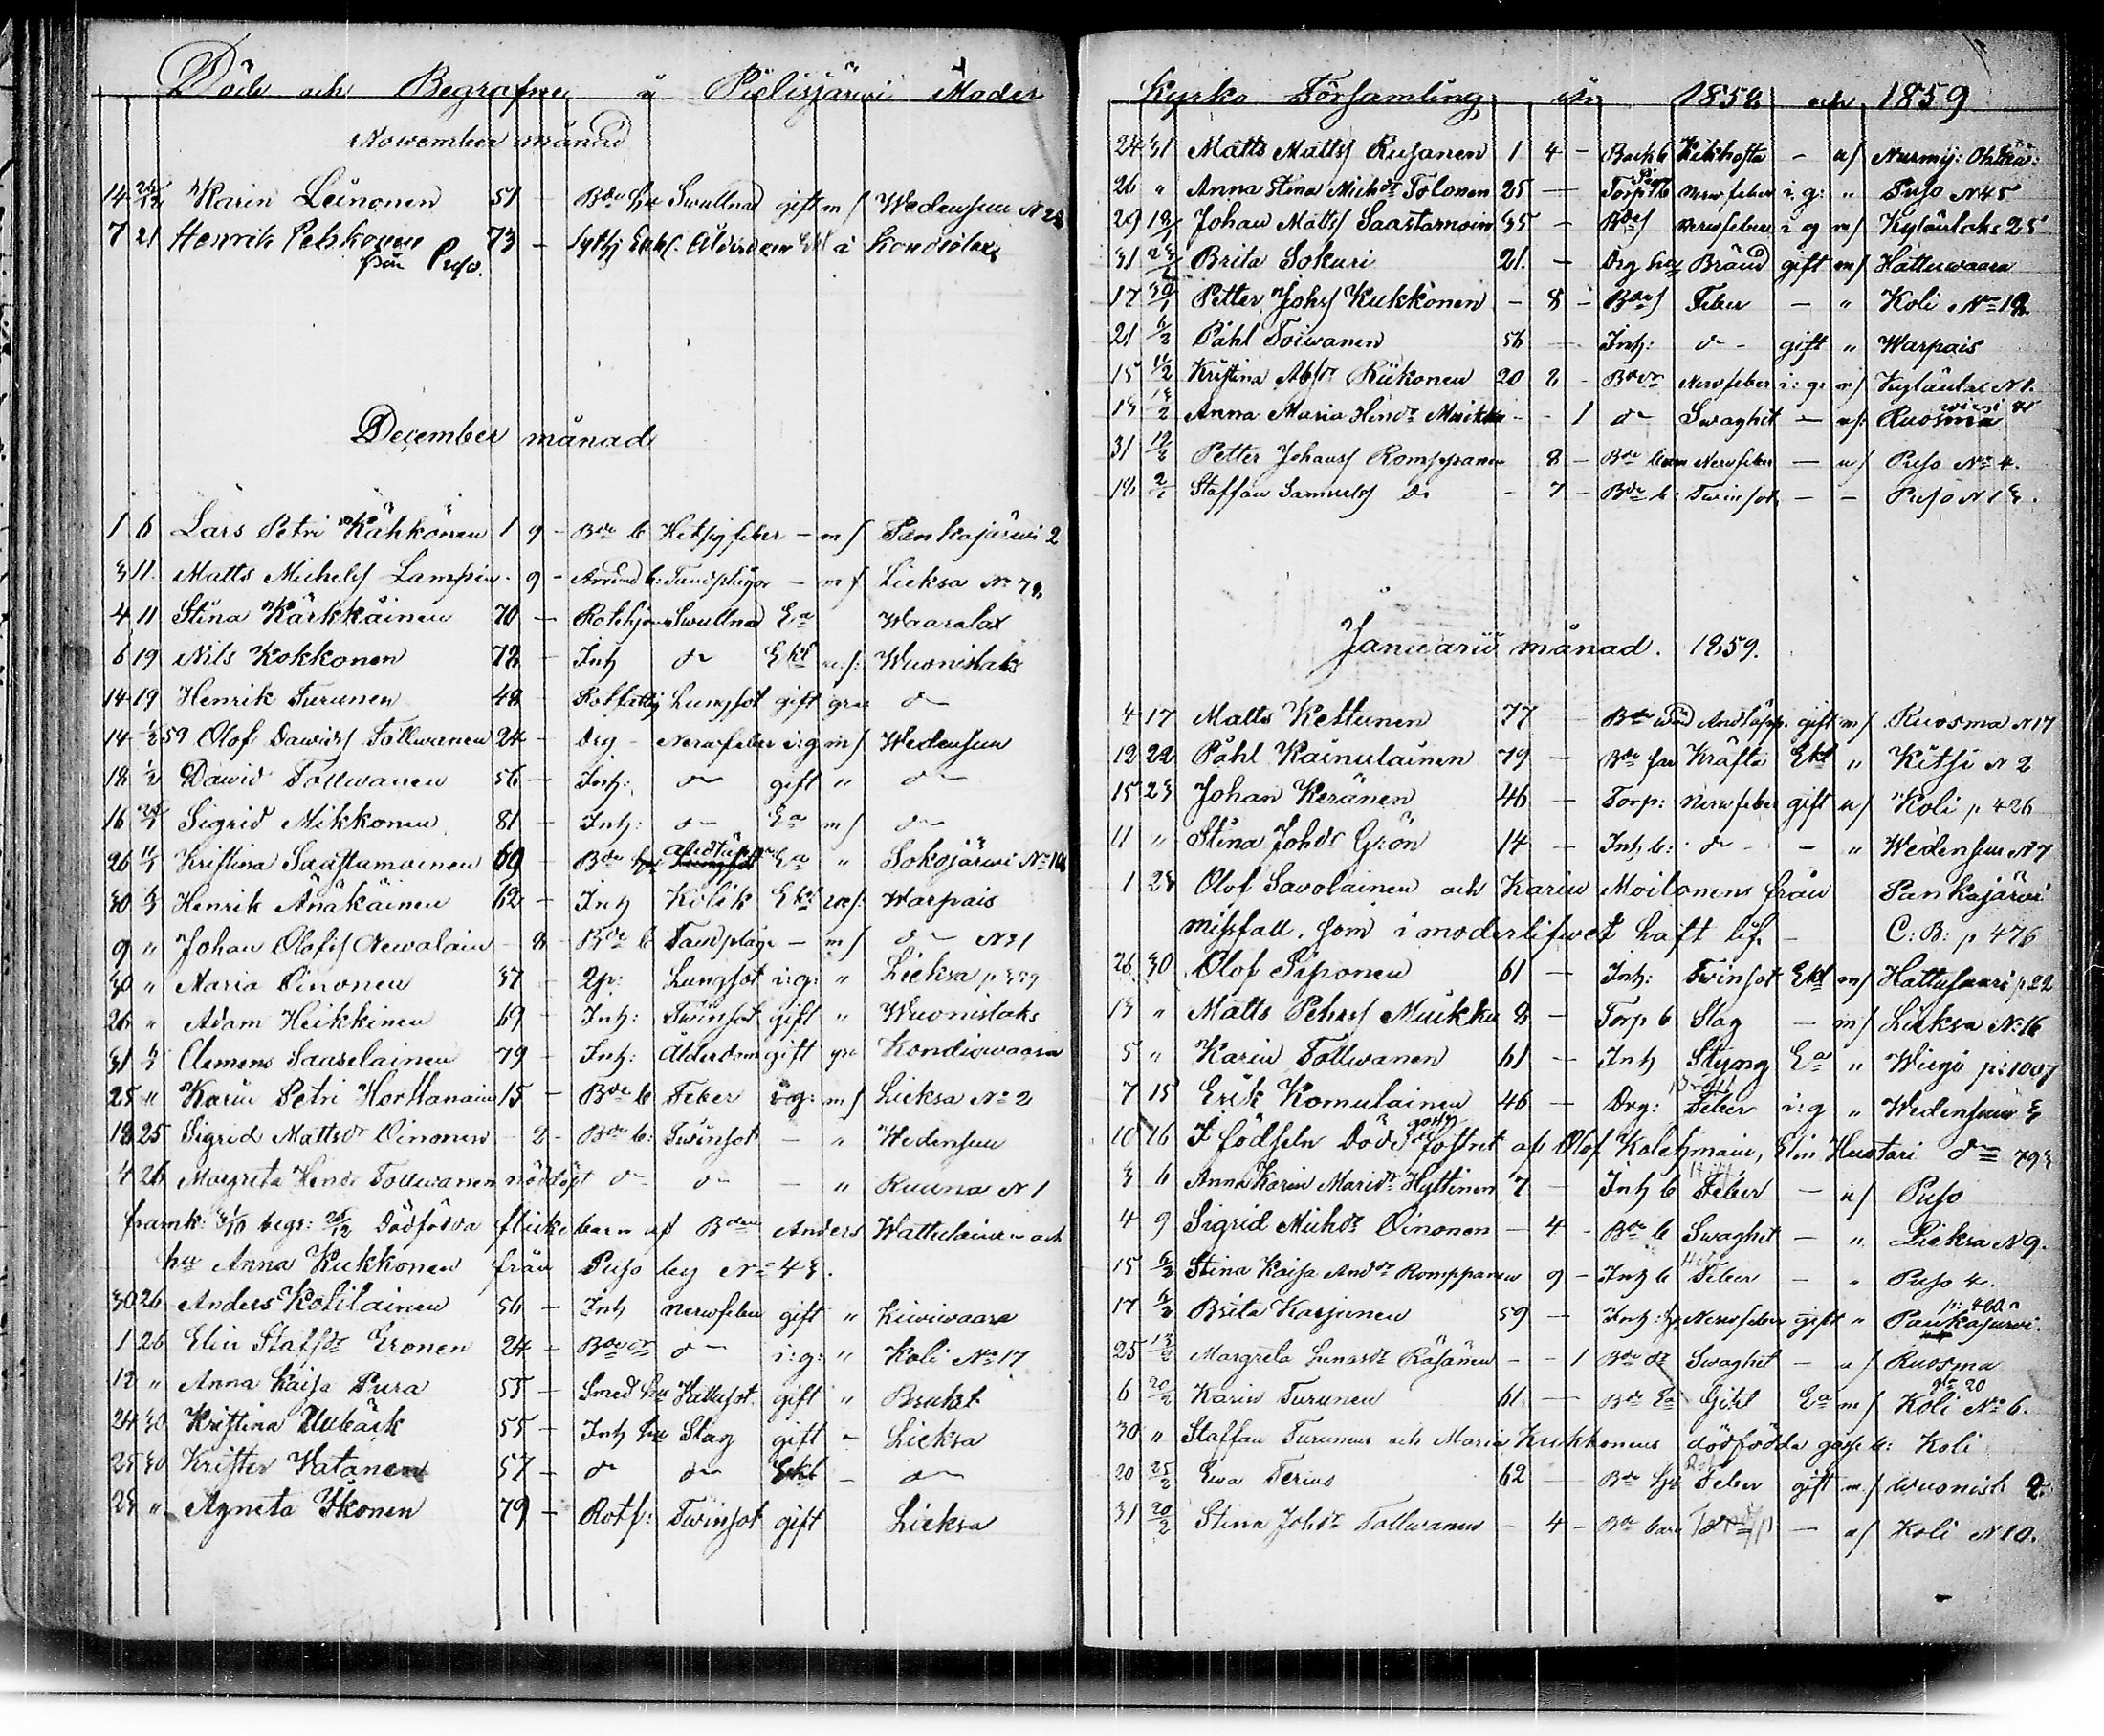 Döde och Begrafne i Pielisjärvi Moder
November månad
14 Karin Leinonen 51 - Bde Swullnad gift m/ Wedensuu N
7 21 Henrik Pelkonen 73 - Enkl. Ålderdom Ekl à Kondiolax
från Puso.
December månad
1 6 Lars Petri Kähkönen 1 9 - Bde b Hetsig feber - m/ Pankajärwi 2
3 11. Matts Michels/ - 9 - b: Tandplågor - m/ Lieksa No
4 11 Stina Kärkkäinen 70 - Swullnad Ea Waaralax
6 19 Nils Kokkonen 72 - Inh do Ekl Wuonislaks
14 19 Henrik Turunen 48 - Rotfattig Lungsot gift do
14 59 Olof Dawids/ Tollwanen 24 - Drg - Nervfeber i:g m/ Wedensuu
18 Dawid Tollwanen 56 - Inh: do gift " do
16 Sigrid Mikkonen 81 - Inh: do Ea m/ do
26 Kristina Saastamoinen 69 - Bde andtäppa Ea " Sokojärwi No
30 Henrik Änäkäinen 62 - Inh Kolik Ekl Warpais
9 " Johan Olofs/ Newalain - 8 - Bde b Tandplåge - m/ do N1
30 " Maria Oinonen 37 - Lungsot i:g: " Lieksa
26 " Adam Heikkinen 69 - Inh: Twinsot gift " Wuonislaks
31 Clemens Saarelainen 79 - Inh: Ålderdom gift Kondiowaara
25 " Karin Petri Horttanain 15 - Bde b Feber i:g: m/ Lieksa No 2
18 25 Sigrid Mattsdr Oinonen - 2 - Bde b: Twinsot - " Wedensuu
4 26 Margreta Hendr Tollwanen nöddöpt do do - " Ruuna N 1
framk: begr: Dödfödda flickebarn af Bden Anders Wattulainen och
hu Anna Kukkonen från Puso by No 43.
30 26 Anders Kotilainen 56 - Inh nervfeber gift " Kiwiwaara
1 26 Elin Staffsdr Eronen 24 - Bdedr do i:g: " Koli No 17
12 " Anna Kaisa Pura 55 - Smed hu gift " Bruket
24 30 Kristina 55 - Inh hu Slag gift - Lieksa
25 30 Krister Watanen 57 - do do Ekl - do
28 " Agneta Ikonen 79 - Rotf: Twinsot gift Lieksa
Kyrko Församling år 1858 och 1859
24 31 Matts Matts/ Rusanen 1 4 - Backb Kikhosta - a/ Nurmij:
26 " Anna Stina Michdr Tolonen 25 - Torp Nervfeber i:g: " Puso N 45
29 Johan Matts/ Saastamoin 35 - Bde/ Nervfeber i g m/ Kylänlaks 25
31 Brita Sokuri 21. - Drg hu Bränd gift m/ Hattuwaara
17 Petter Johs/ Kukkonen - 8 - Bde/ Feber - " Koli No 12
21 Påhl Toiwanen 56 - Inh: do - gift " Warpais
15 Kristina Absdr Riikonen 20 2 - Bdedr Nervfeber i:g: m/ Kylänlax N 1.
13 Anna Maria Hindr Muikku - - 1 do Swaghet - Ruosma
31 Petter Johans/ Romppanen 8 - Bde barn Nervfeber - a/ Puso No 4.
18 Staffan Samuels/ do - 7 - Bde b: Twinsot - - Puso N 13.
Januarii månad. 1859.
4 17 Matts Kettunen 77 - Bde Andtäpp. gift m/ Ruosma N 17
12 22 Påhl Kainulainen 79 - Bde far Kräfta Ekl " Kitsi N 2
15 23 Johan Keränen 46 - Torp: Nervfeber gift a/ Koli p. 426
11 " Stina Johdr Grön 14 - Inh b: do - " Wedensuu N 7
1 28 Olof Savolainen och Karin Moilonens från Pankajärwi
missfall, som i moderlifwet haft lif. - C:B: p 476
26 30 Olof Siponen 61 - Inh: Twinsot Ekl m/ Hattusaari p 22
13 " Matts Pehrs/ Muikku 8 - Torp b Slag - m/ Lieksa No 16
5 " Karin Tollwanen 61 - Inh Styng Ea " Wieji p: 1007
7 15 Erik Komulainen 46 - Drg: Feber i:g " Wedensuu 3
10 16 I födseln döde fostret af Olof Kolehmain, Elin Hustari do 793
3 6 Anna Karin Maridr Hyttinen 7 - Inh b Feber - a/ Puso
4 9 Sigrid Michdr Oinonen - 4 - Bde b Swaghet - " Lieksa N 9.
15 Stina Kaisa Anddr Romppanen 9 - Inh b Feber - " Puso 4.
17 Brita Karjunen 59 - Inh: h Nervfeber gift " Pankajärwi.
25 Margreta Lenardr Räsänen - - 1 Bde dr Swaghet - a/ Ruosma
6 Karin Turunen 61 - Bde Ea Gikt Ea m/ Koli No 6.
30 " Staffan Turunens och Maria Kukkonens dödfödda gosse b: Koli
20 Ewa Terius 62 - Bde Feber gift m/ Wuonisl: 2.
31 Stina Johdr Tollwanen - 4 - Bde barn - a/ Koli N 10.